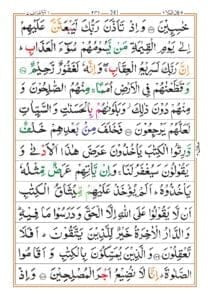 خٰسِـِٕيْنَ ۝ وَاِذْ تَاَذَّنَ رَبُّكَ لَيَبْعَثَنَّ عَلَيْهِمْ
اِلٰى يَوْمِ الْقِيٰمَةِ مَنْ يَّسُوْمُهُمْ سُوْٓءَ الْعَذَابِ ؕ
اِنَّ رَبَّكَ لَسَرِيْعُ الْعِقَابِ ۖ وَاِنَّهٗ لَغَفُوْرٌ رَّحِيْمٌ ۝
وَقَطَّعْنٰهُمْ فِى الْاَرْضِ اُمَمًا ۚ مِنْهُمُ الصّٰلِحُوْنَ
وَمِنْهُمْ دُوْنَ ذٰلِكَ ۡ وَبَلَوْنٰهُمْ بِالْحَسَنٰتِ وَالسَّيِّاٰتِ
لَعَلَّهُمْ يَرْجِعُوْنَ ۝ فَخَلَفَ مِنْۢ بَعْدِهِمْ خَلْفٌ
وَّرِثُوا الْكِتٰبَ يَاْخُذُوْنَ عَرَضَ هٰذَا الْاَدْنٰى وَ
يَقُوْلُوْنَ سَيُغْفَرُ لَنَا ۚ وَاِنْ يَّاْتِهِمْ عَرَضٌ مِّثْلُهٗ
يَاْخُذُوْهُ ؕ اَلَمْ يُؤْخَذْ عَلَيْهِمْ مِّيْثَاقُ الْكِتٰبِ
اَنْ لَّا يَقُوْلُوْا عَلَى اللّٰهِ اِلَّا الْحَقَّ وَدَرَسُوْا مَا فِيْهِ ؕ
وَالدَّارُ الْاٰخِرَةُ خَيْرٌ لِّلَّذِيْنَ يَتَّقُوْنَ ؕ اَفَلَا
تَعْقِلُوْنَ ۝ وَالَّذِيْنَ يُمَسِّكُوْنَ بِالْكِتٰبِ وَاَقَامُوا
الصَّلٰوةَ ؕ اِنَّا لَا نُضِيْعُ اَجْرَ الْمُصْلِحِيْنَ ۝ وَاِذْ